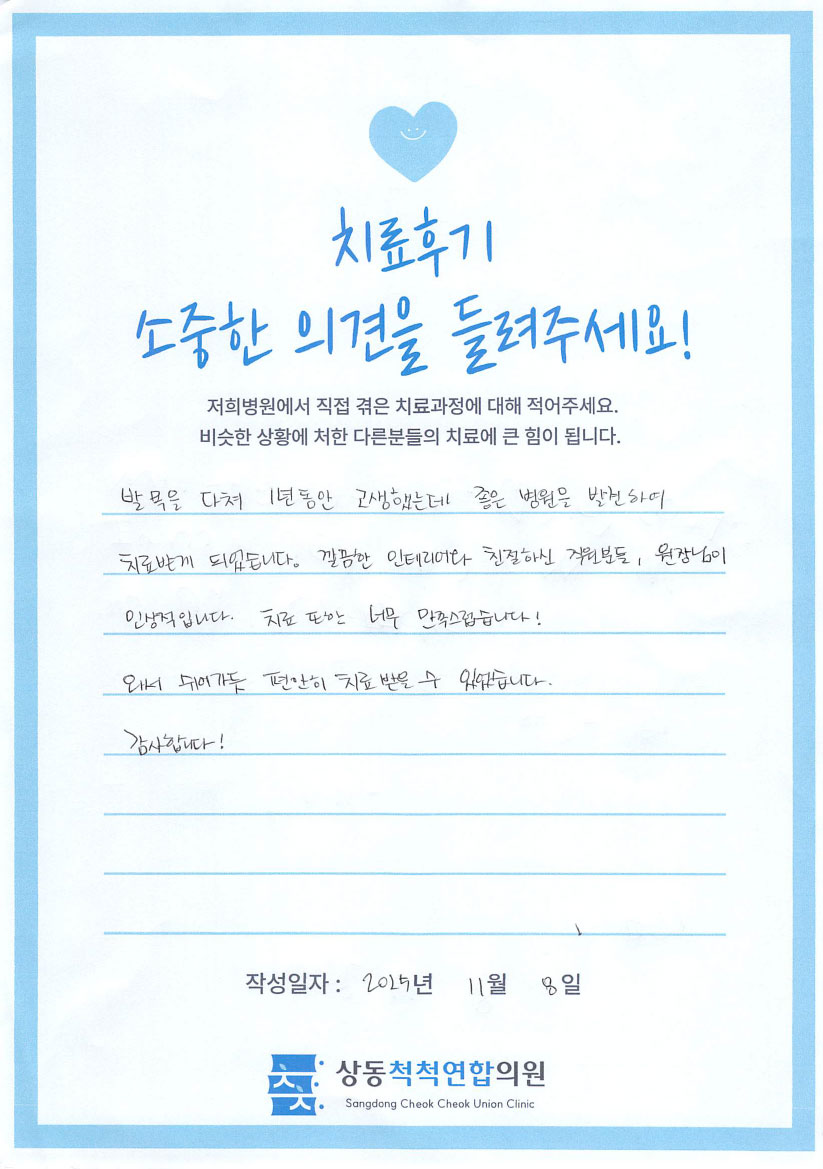 치료후기
소중한 의견을 들려주세요!
저희병원에서 직접 겪은 치료과정에 대해 적어주세요.
비슷한 상황에 처한 다른분들의 치료에 큰 힘이 됩니다.
발목을 다쳐 1년동안 고생했는데 좋은 병원을 발견하여
치료받게 되었습니다. 깔끔한 인테리어와 친절하신 직원분들, 원장님이
인상적입니다. 치료 또한 너무 만족스럽습니다!
와서 쉬어가듯 편안히 치료 받을 수 있었습니다.
감사합니다!
작성일자 : 2025년 11월 8일
상동척척연합의원
Sangdong Cheok Cheok Union Clinic